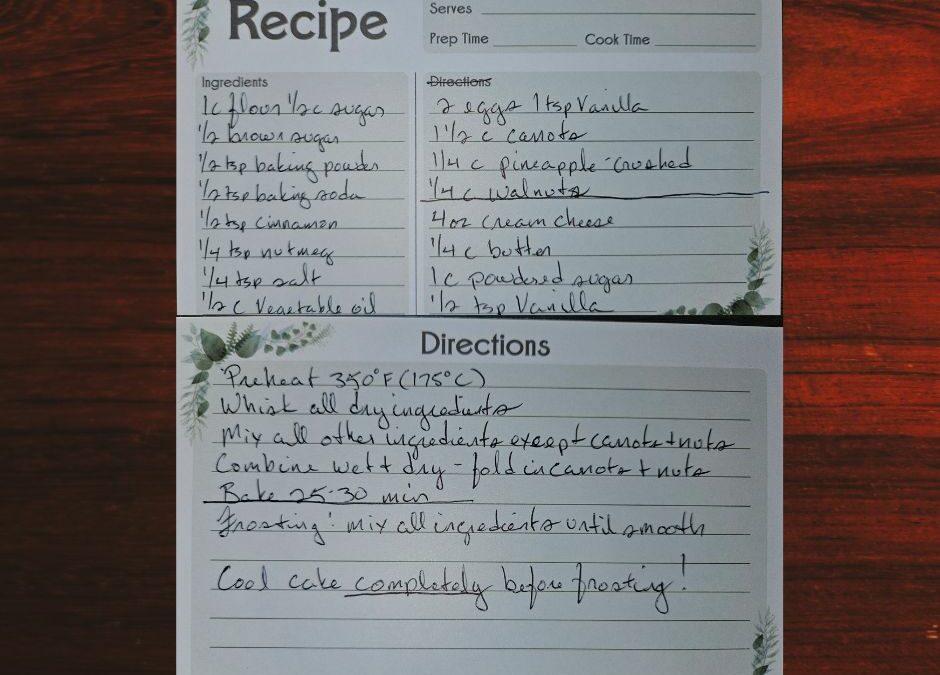 Recipe
Serves
Prep Time Cook Time
Ingredients
1c flour 1/2c sugar
1/2 brown sugar
1/2 tsp baking powder
1/2 tsp baking soda
1/2 tsp cinnamon
1/4 tsp nutmeg
1/4 tsp salt
1/2 c Vegetable oil
Directions
2 eggs 1 tsp Vanilla
1 1/2 c carrots
1/4 c pineapple - crushed
1/4 c walnuts
4oz cream cheese
1/4 c butter
1c powdered sugar
1/2 tsp Vanilla
Directions
Preheat 350°F (175°C)
Whisk all dry ingredients
Mix all other ingredients except carrots + nuts
Combine wet + dry - fold in carrots + nuts
Bake 25-30 min
Frosting: mix all ingredients until smooth
Cool cake completely before frosting!